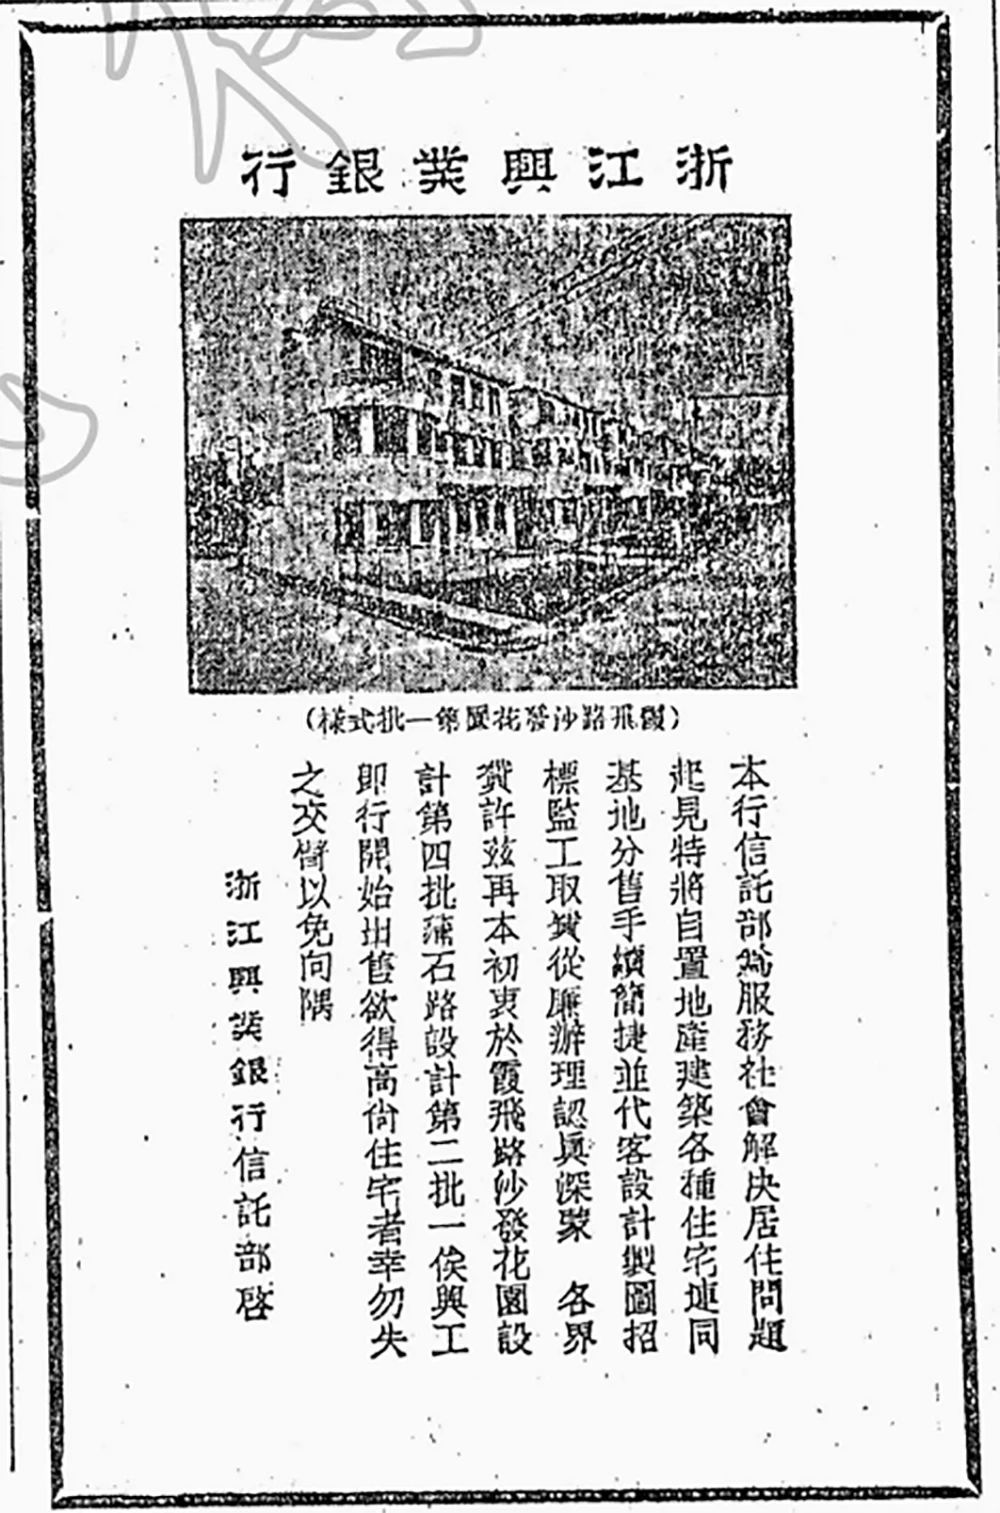 浙江興業銀行
（霞飛路沙發花園第一批式樣）
本行信託部為服務社會解決居住問題
起見特將自置地產建築各種住宅連同
基地分售手續簡捷並代客設計製圖招
標監工取費從廉辦理認真深蒙　各界
獎許茲再本初衷於霞飛路沙發花園設
計第四批蒲石路設計第二批一俟興工
即行開始出售欲得高尚住宅者幸勿失
之交臂以免向隅
浙江興業銀行信託部啓